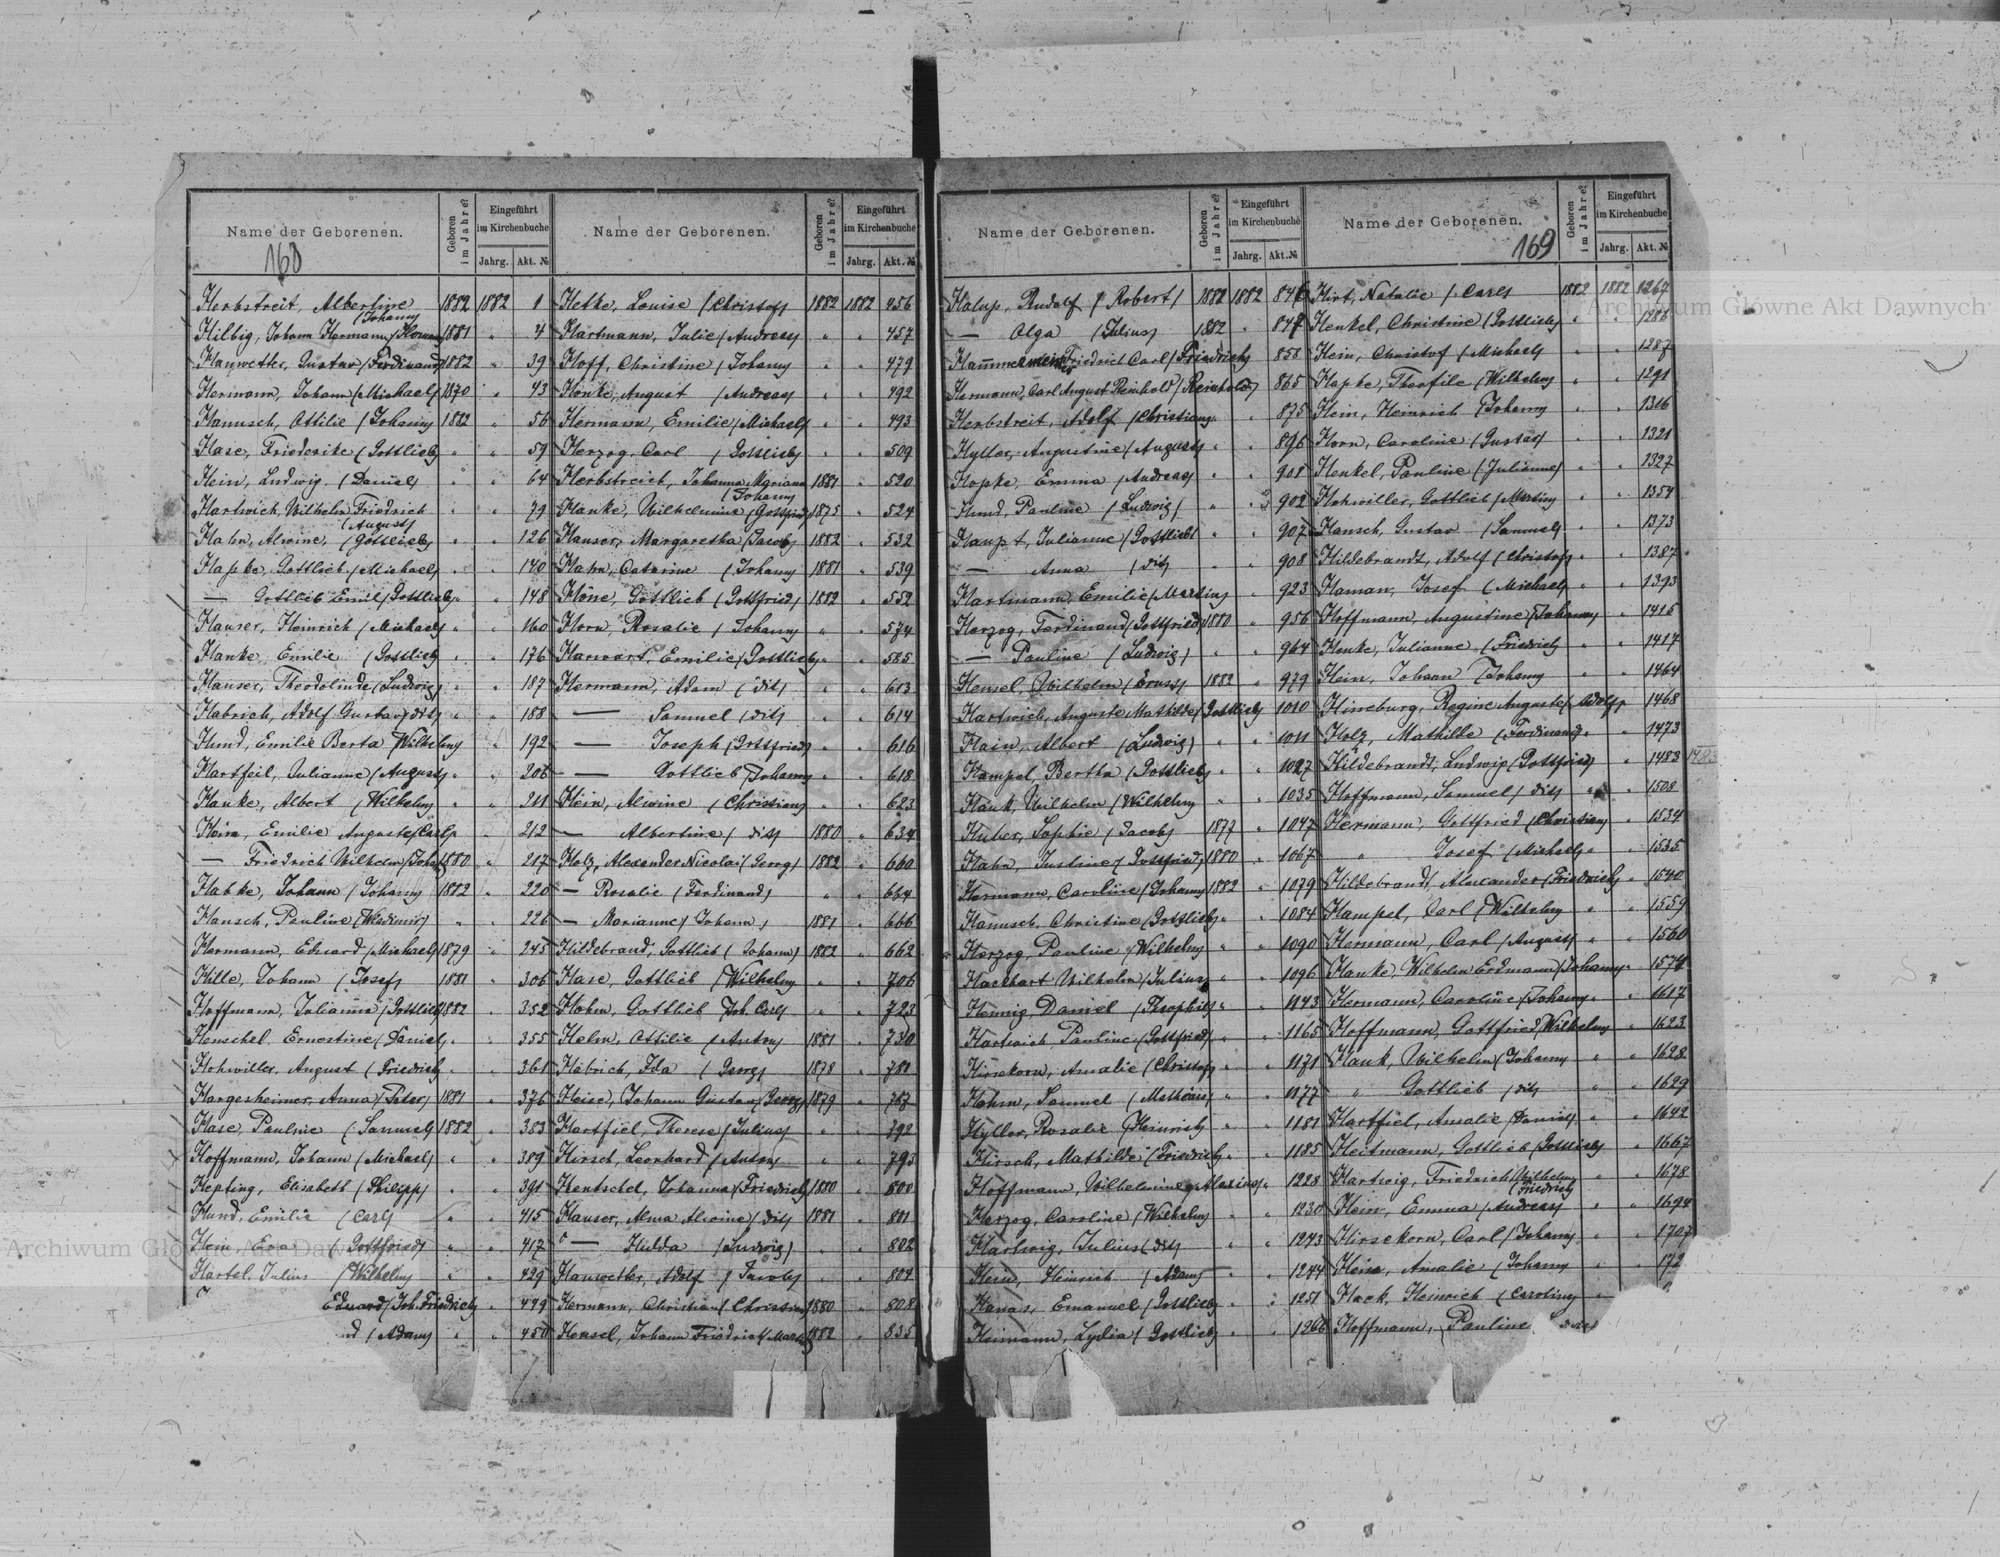 Name der Geborenen.
Geboren im Jahre?
Eingeführt im Kirchenbuche
Jahrg. Akt. №
160
Herbstreit, Albertine (Johann) 1882 1882 1
Hilbig, Johann Hermann (Herman) 1881 " 4
Hauwetter, Gustav (Ferdinand) 1882 " 39
Hermann, Johann (Michael) 1870 " 43
Hanusch, Ottilie (Johann) 1882 " 56
Hase, Friederike (Gottlieb) " " 59
Hein, Ludwig (Daniel) " " 64
Hartwich, Wilhelm Friedrich (August) " " 79
Hahn, Alwine, (Gottlieb) " " 126
Hapke, Gottlieb (Michael) " " 140
— Gottlieb Emil (Gottlieb) " " 148
Hauser, Heinrich (Michael) " " 160
Hanke, Emilie (Gottlieb) " " 176
Hauser, Theodolinde (Ludwig) " " 187
Habrich, Adolf Gustav (dit) " " 188
Hund, Emilie Berta (Wilhelm) " 192
Hartfeil, Julianne (August) " " 206
Hanke, Albert (Wilhelm) " " 211
Heim, Emilie Auguste (Carl) " 212
— Friedrich Wilhelm (Joh.) 1880 " 217
Habke, Johann (Johann) 1882 " 220
Hansch, Pauline (Wladimir) " " 226
Hermann, Eduard (Michael) 1879 " 245
Hille, Johann (Josef) 1881 " 306
Hoffmann, Julianna (Gottlieb) 1882 " 352
Henschel, Ernestine (Daniel) " " 355
Hohwiller, August (Friedrich) " " 361
Hargesheimer, Anna (Peter) 1881 " 376
Hase, Pauline (Samuel) 1882 " 383
Hoffmann, Johann (Michael) " " 389
Hepting, Elisabeth (Philipp) " " 391
Hund, Emilie (Carl) " " 415
Hein, Eva (Gottfried) " " 417
Härtel, Julius (Wilhelm) " " 429
Eduard (Joh. Friedrich) " 449
nd (Adam) " " 450
Name der Geborenen.
Geboren im Jahre?
Eingeführt im Kirchenbuche
Jahrg. Akt. №
Hetke, Louise (Christof) 1882 1882 456
Hartmann, Julie (Andreas) " " 457
Hoff, Christine (Johann) " " 479
Henke, August (Andreas) " " 492
Hermann, Emilie (Michael) " " 493
Herzog, Carl (Gottlieb) " " 509
Herbstreich, Johanna Mariana (Johann) 1881 " 520
Hanke, Wilhelmine (Gottfried) 1875 " 524
Hauser, Margaretha (Jacob) 1882 " 532
Hahn, Catarine (Johann) 1881 " 539
Höne, Gottlieb (Gottfried) 1882 " 552
Horn, Rosalie (Johann) " " 574
Harwart, Emilie (Gottlieb) " " 585
Hermann, Adam (dit) " " 613
— Samuel (dit) " " 614
— Joseph (Gottfried) " " 616
— Gottlieb (Johann) " " 618
Hein, Alwine (Christian) " " 623
— Albertine (dit) 1880 " 634
Holz, Alexander Nicolai (Georg) 1882 " 660
— Rosalie (Ferdinand) " " 664
— Marianne (Johann) 1881 " 666
Hildebrand, Gottlieb (Johann) 1882 " 662
Hase, Gottlieb (Wilhelm) " " 706
Hohm, Gottlieb (Joh. Carl) " " 723
Helm, Ottilie (Anton) 1881 " 730
Häbrich, Ida (Georg) 1878 " 781
Heise, Johann Gustav (Georg) 1879 " 787
Hartfiel, Therese (Julius) " " 792
Hirsch, Leonhard (Anton) " " 793
Hentschel, Johanna (Friedrich) 1880 " 800
Hauser, Alma Alwine (dit) 1881 " 801
" — Hulda (Ludwig) " " 802
Hauwetter, Adolf (Jacob) " " 804
Hermann, Christian (Christian) 1880 " 808
Hensel, Johann Friedrich (Martin) 1882 " 835
Name der Geborenen.
Geboren im Jahre?
Eingeführt im Kirchenbuche
Jahrg. Akt. №
Halup, Rudolf (Robert) 1882 1882 846
— Olga (Julius) 1882 " 847
Hammermeister Friedrich Carl (Friedrich) 858
Hermann, Carl August Reinhold (Reinhold) 865
Herbstreit, Adolf (Christian) " 875
Hyller, Augustine (August) " " 896
Hopke, Emma (Andreas) " " 901
Hund, Pauline (Ludwig) " " 902
Haupt, Julianne (Gottlieb) " " 907
— Anna (dit) " " 908
Hartmann, Emilie (Martin) " 923
Herzog, Ferdinand (Gottfried) 1880 " 956
— Pauline (Ludwig) " " 964
Hensel, Wilhelm (Ernst) 1882 " 979
Hartwich, Auguste Mathilde (Gottlieb) 1010
Hain, Albert (Ludwig) " " 1011
Hampel, Bertha (Gottlieb) " " 1027
Hank, Wilhelm (Wilhelm) " " 1035
Huber, Sophie (Jacob) 1877 " 1047
Hahn, Justine (Gottfried) 1880 " 1067
Hermann, Caroline (Johann) 1882 " 1079
Hanusch, Christine (Gottlieb) " " 1084
Herzog, Pauline (Wilhelm) " " 1090
Hackbart Wilhelm (Julius) " " 1096
Hennig, Daniel (Theophil) " " 1143
Hartwich Pauline (Gottfried) " " 1165
Hirsekorn, Amalie (Christof) " " 1171
Hohm, Samuel (Mathäus) " " 1177
Hyller, Rosalie (Heinrich) " " 1181
Hirsch, Mathilde (Friedrich) " " 1185
Hoffmann, Wilhelmine (Marian) " 1228
Herzog, Caroline (Wilhelm) " " 1230
Hartwig, Julius (dit) " " 1243
Hein, Heinrich (Adam) " " 1244
Hanas, Emanuel (Gottlieb) " " 1251
Heimann, Lydia (Gottlieb) " " 1266
Name der Geborenen.
Geboren im Jahre?
Eingeführt im Kirchenbuche
Jahrg. Akt. №
169
Hirt, Natalie (Carl) 1882 1882 1267
Henkel, Christine (Gottlieb) " " 1286
Hein, Christof (Michael) " " 1287
Hapke, Theofile (Wilhelm) " " 1291
Hein, Heinrich (Johann) " " 1316
Horn, Caroline (Gustav) " " 1321
Henkel, Pauline (Julianne) " " 1327
Hohwiller, Gottlieb (Martin) " " 1354
Hansch, Gustav (Samuel) " " 1373
Hildebrandt, Adolf (Christof) " " 1387
Haman, Josef (Michael) " " 1393
Hoffmann, Augustine (Johann) " " 1416
Henke, Julianne (Friedrich) " " 1417
Hein, Johann (Johann) " " 1464
Hinneburg, Regine Auguste (Adolf) 1468
Holz, Mathilde (Ferdinand) " " 1473
Hildebrandt, Ludwig (Gottfried) " 1483 1483
Hoffmann, Samuel (dit) " " 1508
Hermann, Gottfried (Christian) " " 1534
" Josef (Michael) " " 1535
Hildebrandt, Alexander (Friedrich) " 1540
Hampel, Carl (Wilhelm) " " 1559
Hermann, Carl (August) " " 1560
Hanke, Wilhelm Erdmann (Johann) " 1574
Hermann, Caroline (Johann) " " 1617
Hoffmann, Gottfried (Wilhelm) " " 1623
Hank, Wilhelm (Johann) " " 1628
" Gottlieb (dit) " " 1629
Hartfiel, Amalie (Daniel) " " 1642
Heitmann, Gottlieb (Gottlieb) " " 1667
Hartwig, Friedrich Wilhelm (Friedrich) " " 1678
Hein, Emma (Andreas) " " 1694
Hirsekorn, Carl (Johann) " " 1707
Hein, Amalie (Johann) " " 172
Hack, Heinrich (Caroline) "
Hoffmann, Pauline
Archiwum Główne Akt Dawnych
Archiwum Główne Akt Dawnych